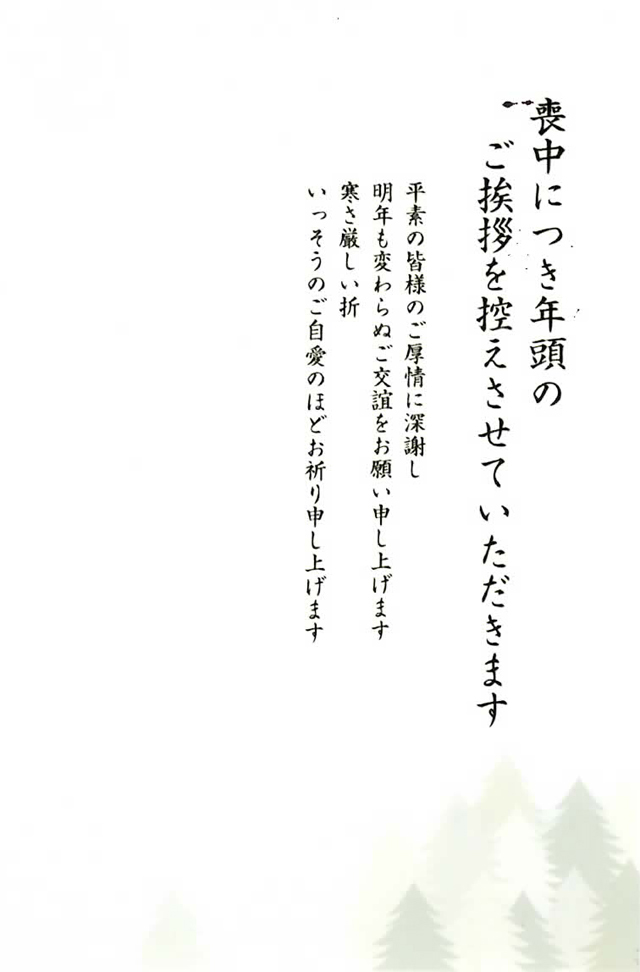 喪中につき年頭の
ご挨拶を控えさせていただきます
平素の皆様のご厚情に深謝し
明年も変わらぬご交誼をお願い申し上げます
寒さ厳しい折
いっそうのご自愛のほどお祈り申し上げます